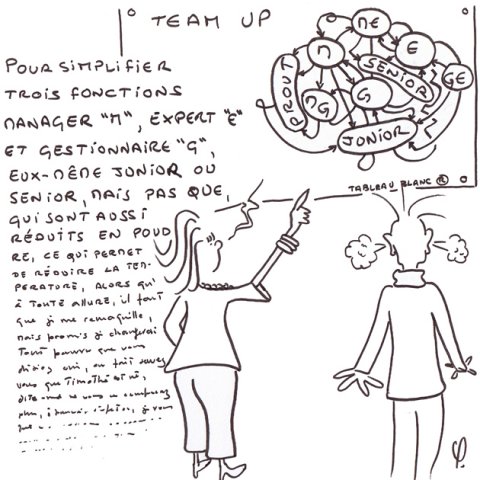 TEAM UP
POUR SIMPLIFIER
TROIS FONCTIONS
MANAGER "M", EXPERT "E"
ET GESTIONNAIRE "G",
EUX-MÊME JUNIOR OU
SENIOR, MAIS PAS QUE,
QUI SONT AUSSI
RÉDUITS EN POUD
RE, CE QUI PERMET
DE RÉDUIRE LA TEM-
PERATURE, ALORS QU'
À TOUTE ALLURE, il faut
que je me remaquille,
mais promis je changerai
Tout pourvu que vous
disiez oui, au fait savez
vous que Timothé est né,
dites-moi
plus,
ME
M
E
SENIOR
GE
PROUT
MG
G
JONIOR
TABLEAU BLANC ®